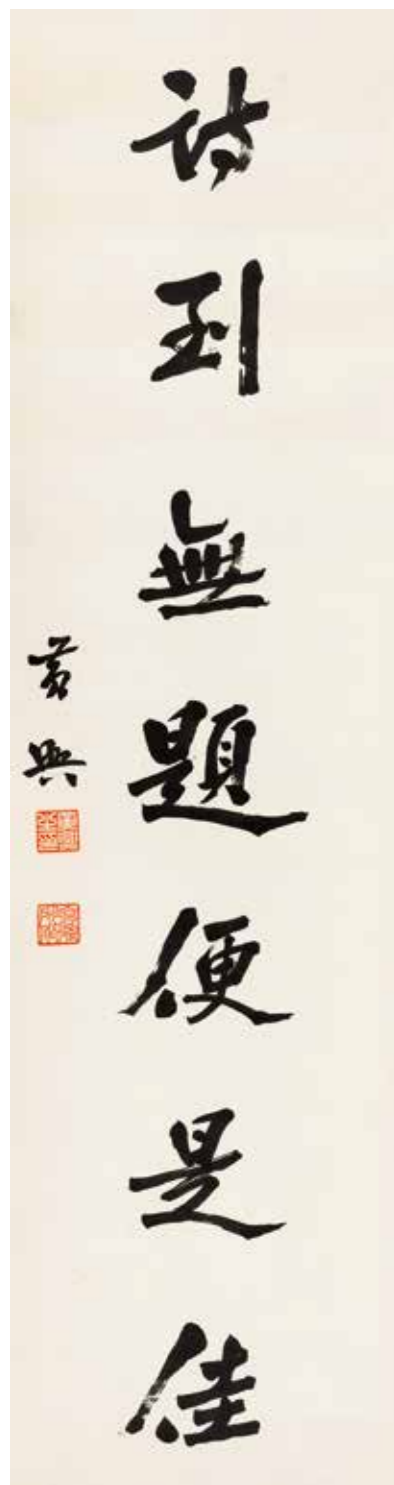 詩到無題便是佳
黃興